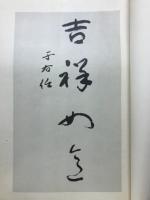 吉祥如意
于右任